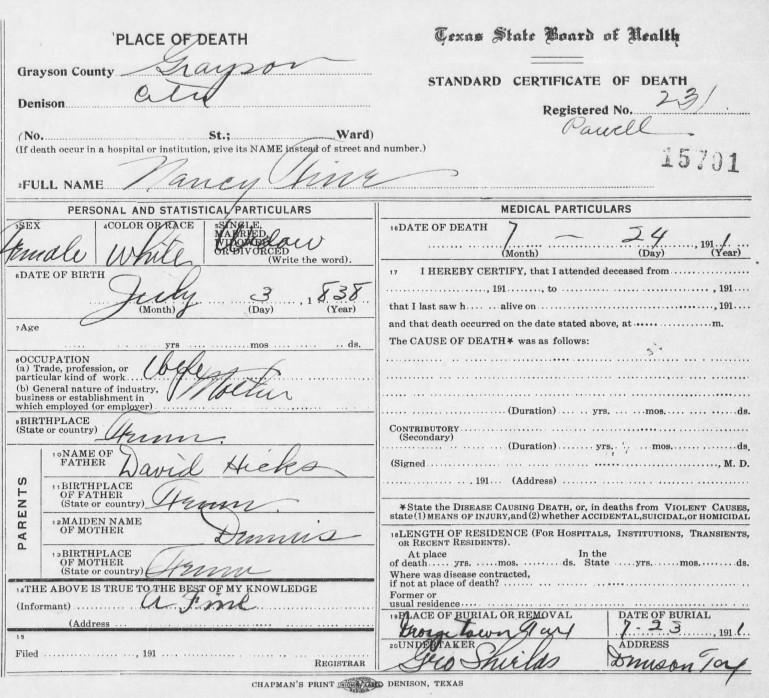 PLACE OF DEATH
Texas State Board of Health
Grayson County Grayson
STANDARD CERTIFICATE OF DEATH
Denison City
Registered No. 231
Powell
(No. St.; Ward)
(If death occur in a hospital or institution, give its NAME instead of street and number.)
15701
2FULL NAME Nancy Fine
PERSONAL AND STATISTICAL PARTICULARS
3SEX Female
4COLOR OR RACE White
5SINGLE,
MARRIED,
WIDOWED
OR DIVORCED
(Write the word).
Widow
6DATE OF BIRTH
July 3, 1838
(Month) (Day) (Year)
7Age
yrs mos ds.
8OCCUPATION
(a) Trade, profession, or
particular kind of work Wife
(b) General nature of industry,
business or establishment in
which employed (or employer) Mother
9BIRTHPLACE
(State or country) Tenn.
PARENTS
10NAME OF
FATHER David Hicks
11BIRTHPLACE
OF FATHER
(State or country) Tenn
12MAIDEN NAME
OF MOTHER Dunnis
13BIRTHPLACE
OF MOTHER
(State or country) Tenn
14THE ABOVE IS TRUE TO THE BEST OF MY KNOWLEDGE
(Informant) A. Fine
(Address
15
Filed , 191
REGISTRAR
MEDICAL PARTICULARS
16DATE OF DEATH 7 - 24, 1911
(Month) (Day) (Year)
17 I HEREBY CERTIFY, that I attended deceased from
, 191 , to , 191
that I last saw h alive on , 191
and that death occurred on the date stated above, at m.
The CAUSE OF DEATH* was as follows:
(Duration) yrs. mos. ds.
CONTRIBUTORY
(Secondary)
(Duration) yrs. mos. ds.
(Signed , M. D.
191 (Address)
*State the DISEASE CAUSING DEATH, or, in deaths from VIOLENT CAUSES,
state (1) MEANS OF INJURY, and (2) whether ACCIDENTAL, SUICIDAL, or HOMICIDAL
18LENGTH OF RESIDENCE (FOR HOSPITALS, INSTITUTIONS, TRANSIENTS,
OR RECENT RESIDENTS).
At place In the
of death yrs. mos. ds. State yrs. mos. ds.
Where was disease contracted,
if not at place of death?
Former or
usual residence
19PLACE OF BURIAL OR REMOVAL
Georgetown Tex
DATE OF BURIAL
7 23, 1911
20UNDERTAKER
Geo Shields
ADDRESS
Denison Tex
CHAPMAN'S PRINT DENISON, TEXAS